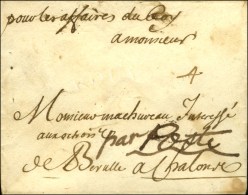 pour les affaires du Roy
a monsieur
4
Monsieur machureau Interessé
par Poste
de Berulle a Chalons